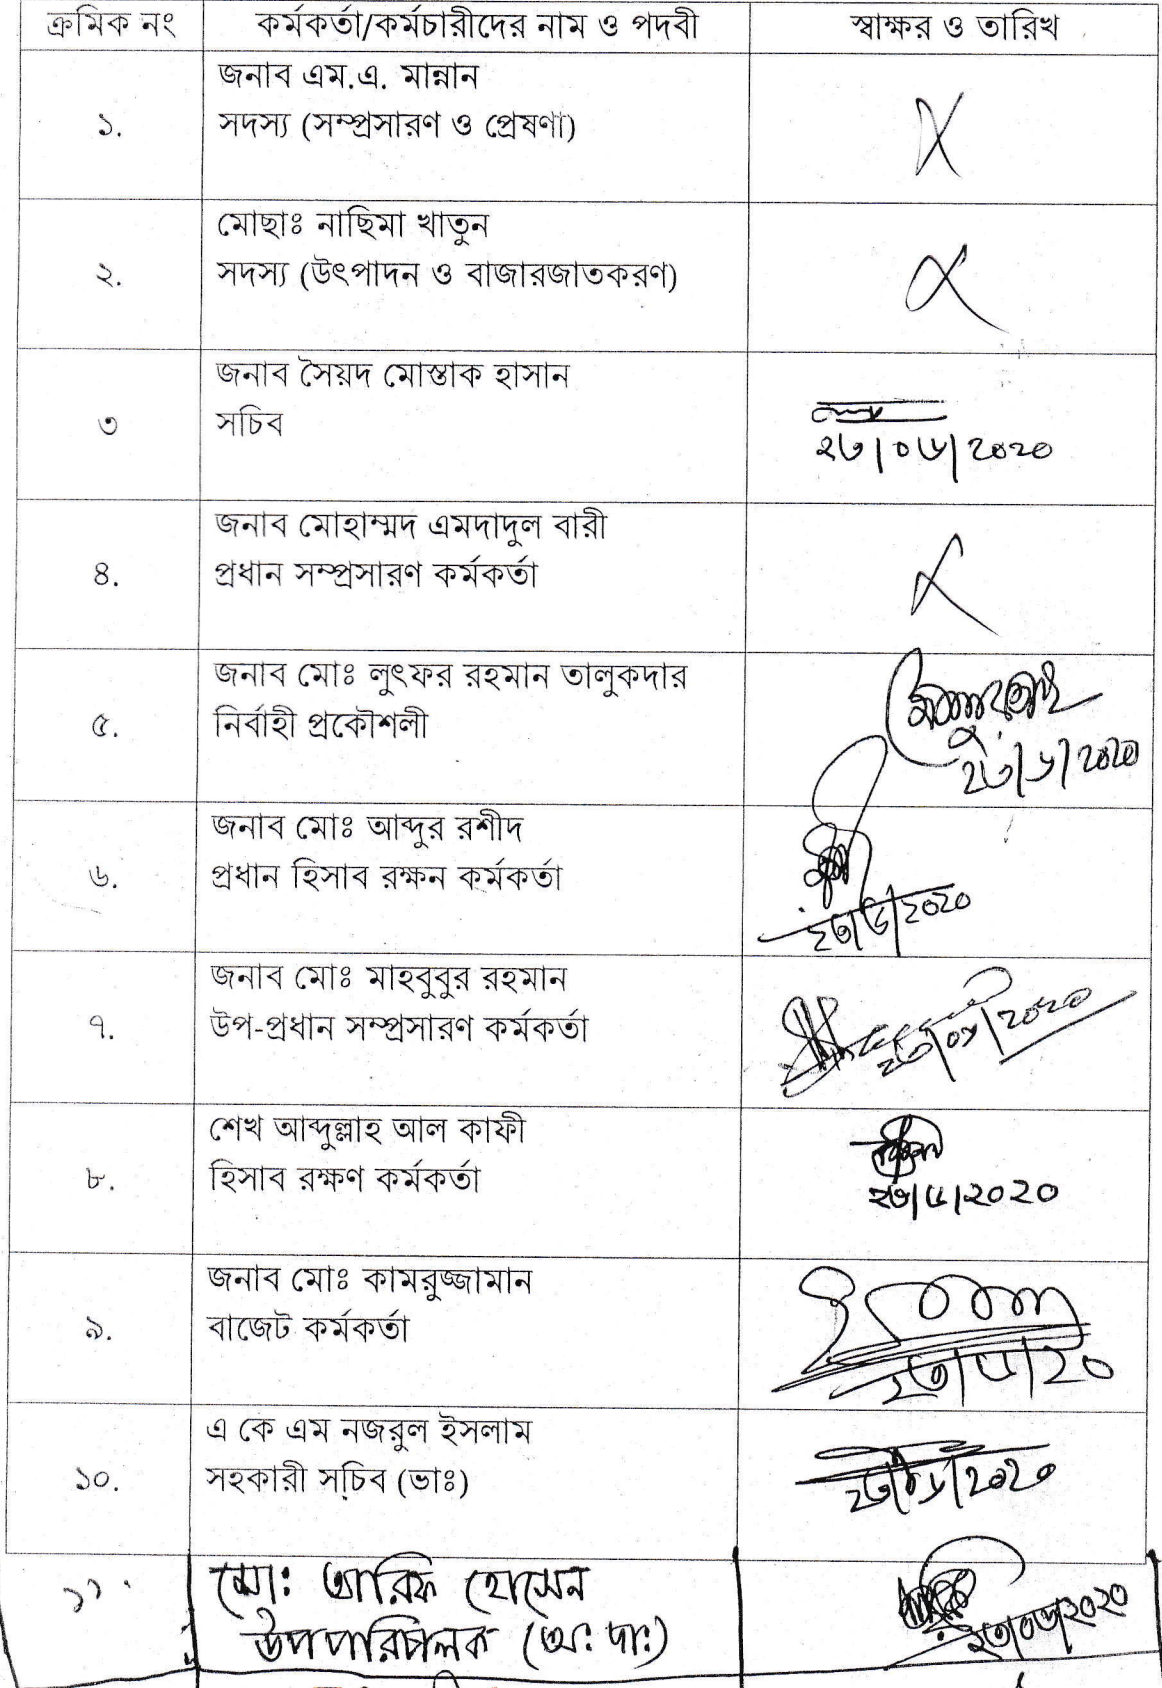 ক্রমিক নং কর্মকর্তা/কর্মচারীদের নাম ও পদবী স্বাক্ষর ও তারিখ
জনাব এম.এ. মান্নান
১. সদস্য (সম্প্রসারণ ও প্রেষণা)
মোছাঃ নাছিমা খাতুন
২. সদস্য (উৎপাদন ও বাজারজাতকরণ)
জনাব সৈয়দ মোস্তাক হাসান
৩ সচিব
২৩/০৬/২০২০
জনাব মোহাম্মদ এমদাদুল বারী
৪. প্রধান সম্প্রসারণ কর্মকর্তা
জনাব মোঃ লুৎফর রহমান তালুকদার
৫. নির্বাহী প্রকৌশলী
২৩/৬/২০২০
জনাব মোঃ আব্দুর রশীদ
৬. প্রধান হিসাব রক্ষন কর্মকর্তা
২৩/৬/২০২০
জনাব মোঃ মাহবুবুর রহমান
৭. উপ-প্রধান সম্প্রসারণ কর্মকর্তা
২৩/০৬/২০২০
শেখ আব্দুল্লাহ আল কাফী
৮. হিসাব রক্ষণ কর্মকর্তা
২৩/৬/২০২০
জনাব মোঃ কামরুজ্জামান
৯. বাজেট কর্মকর্তা
২৩/৬/২০
এ কে এম নজরুল ইসলাম
১০. সহকারী সচিব (ভাঃ)
২৩/০৬/২০২০
১১. মো: আরিফ হোসেন
উপপরিচালক (অ: দা:)
২৩/০৬/২০২০